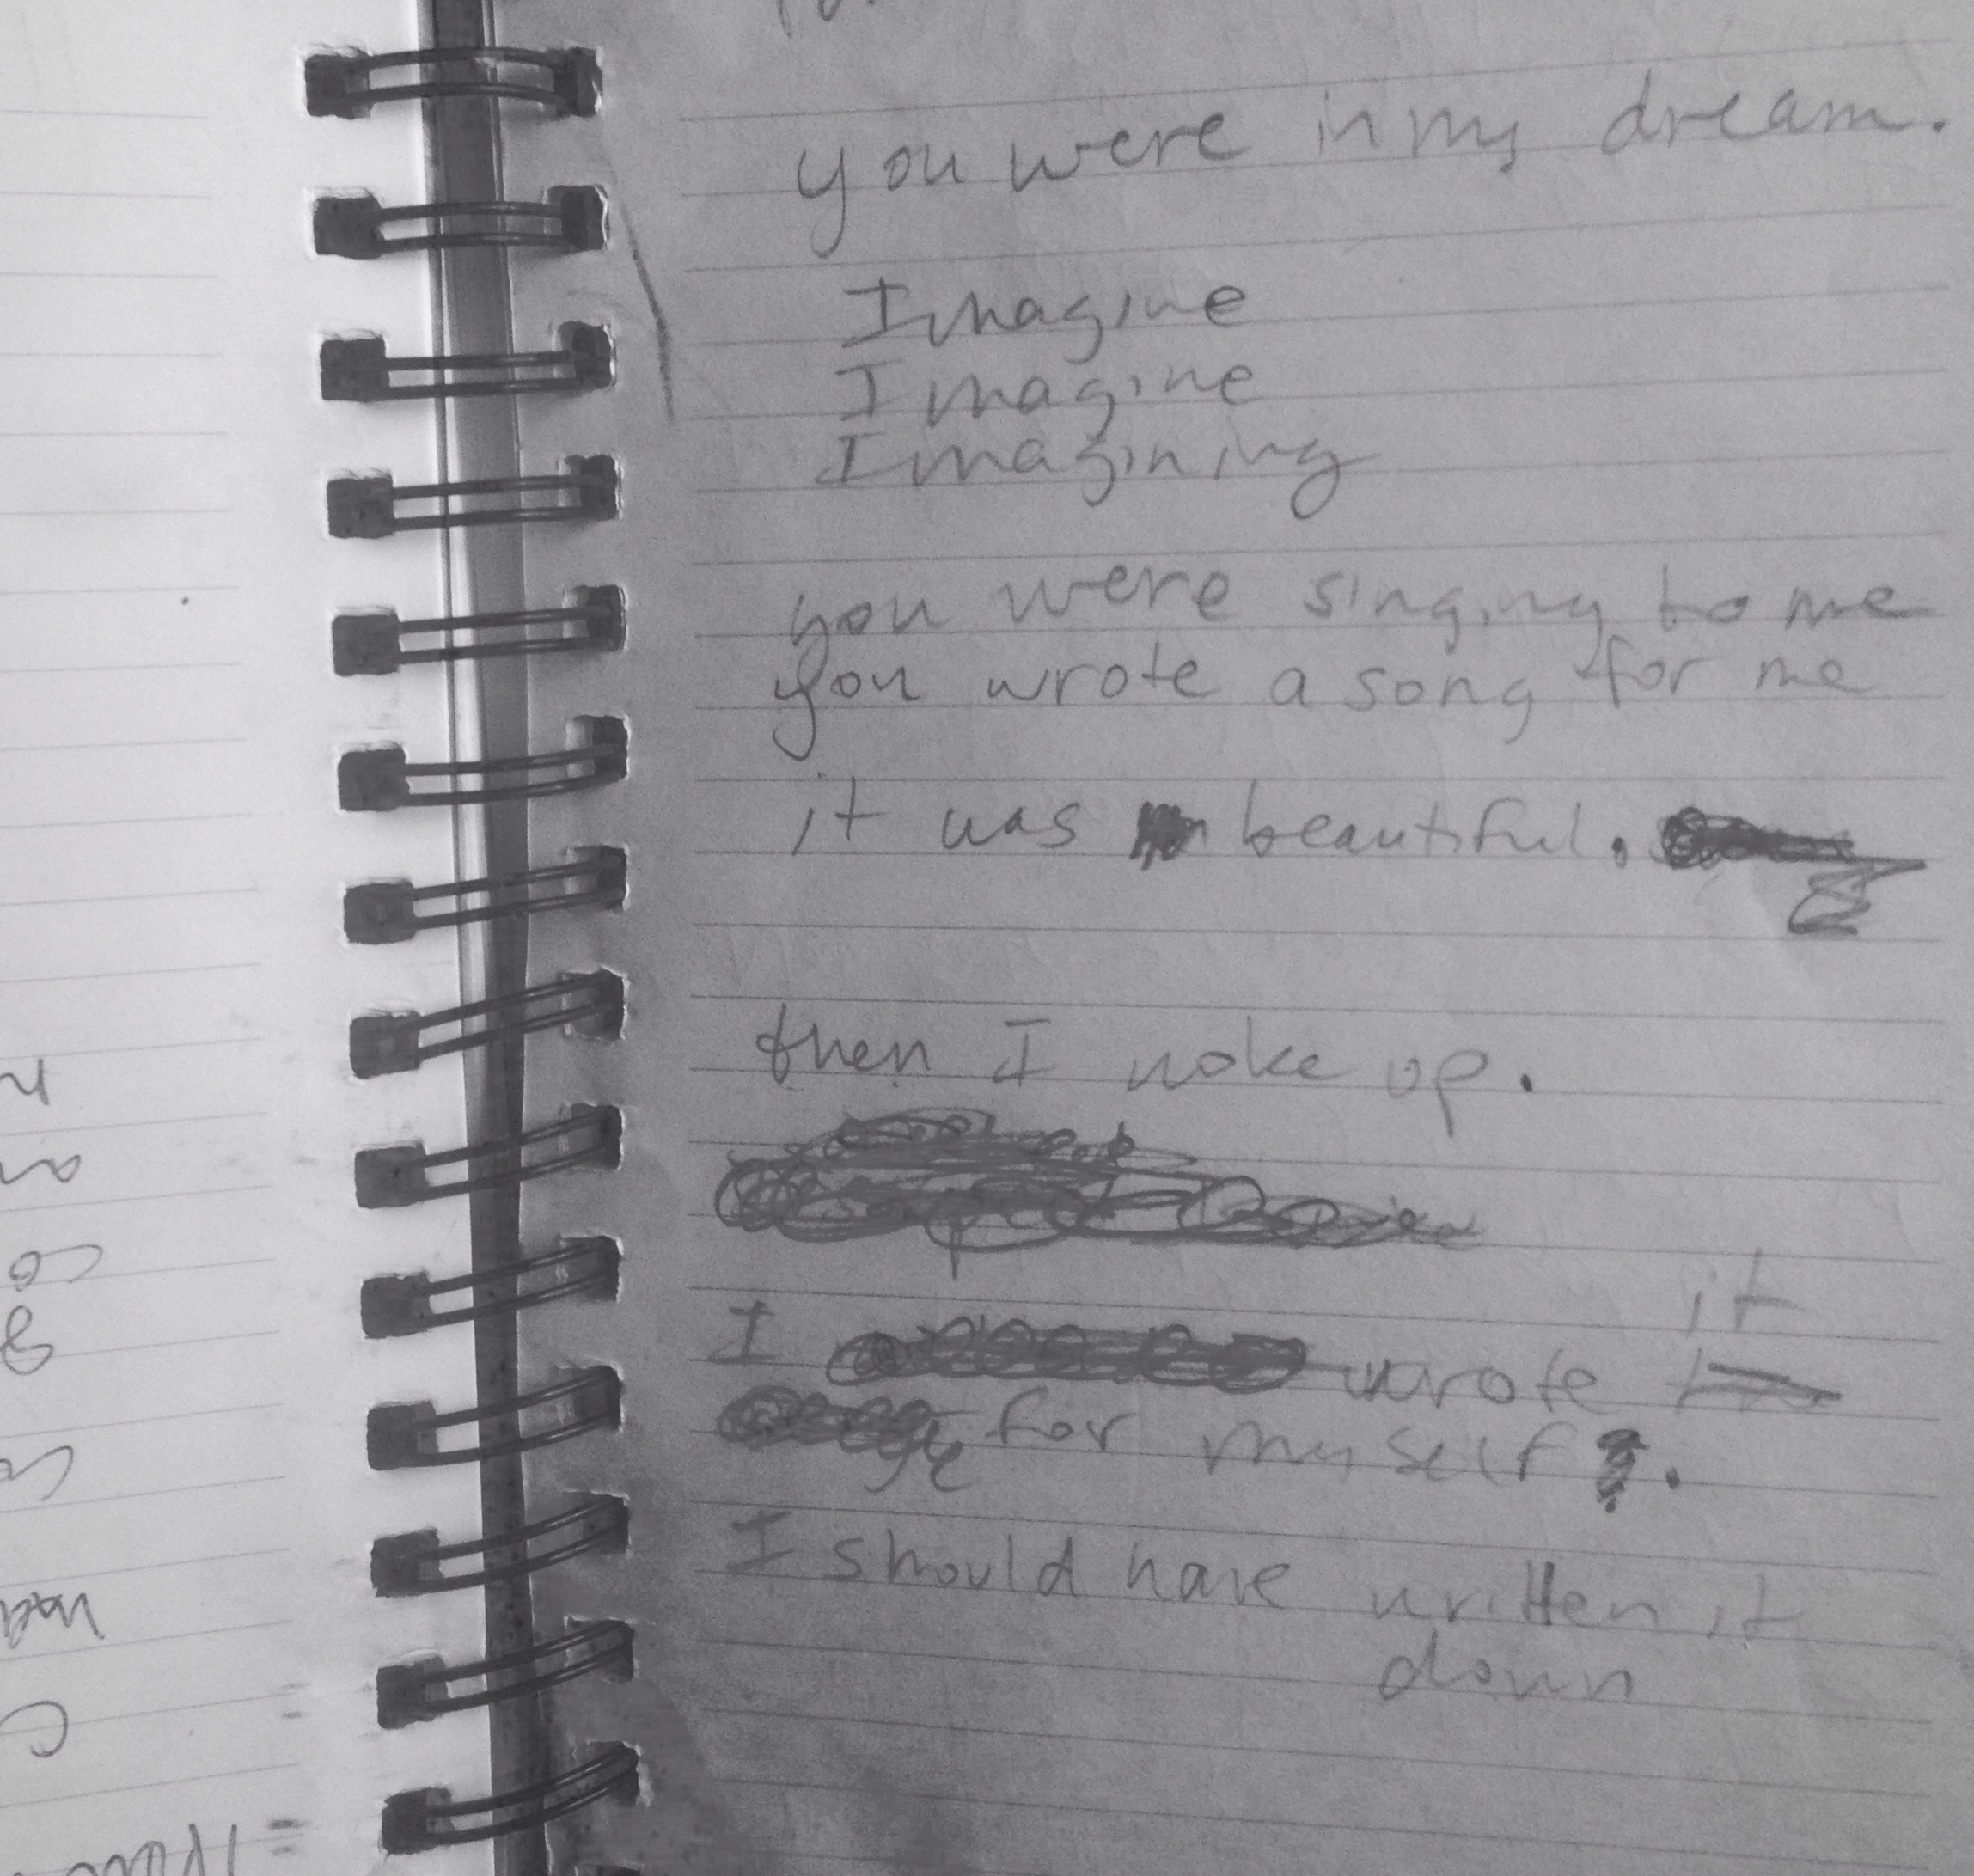 you were in my dream.
Imagine
Imagine
Imagining
you were singing to me
you wrote a song for me
it was beautiful.
then I woke up.
it
I wrote
for myself.
I should have written it
down